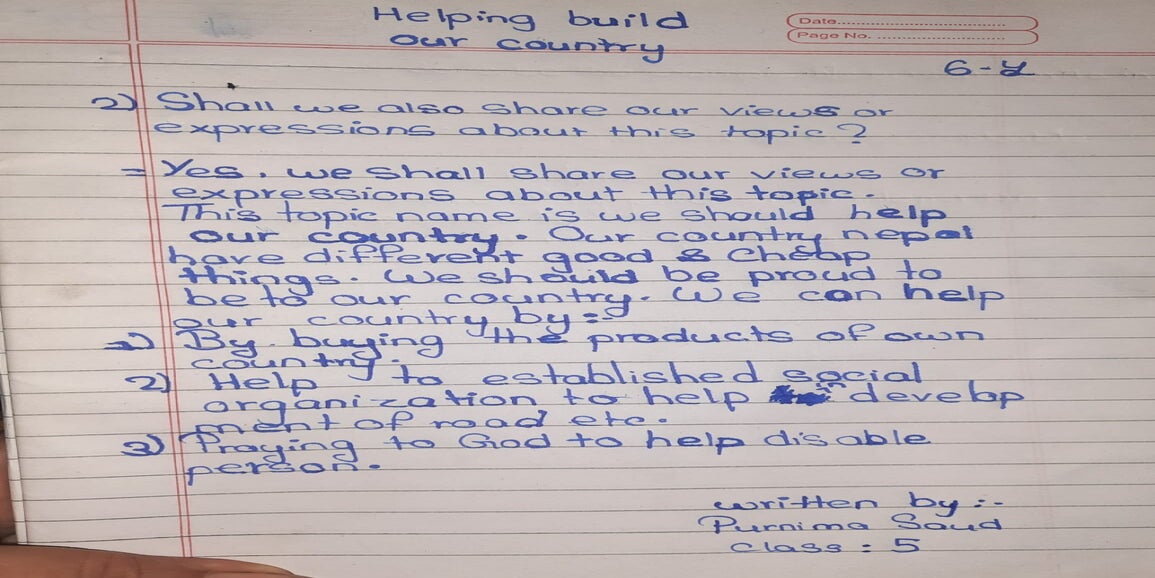 Helping build
our country
Date
Page No.
6-
2) Shall we also share our views or
expressions about this topic?
= Yes, we shall share our views or
expressions about this topic.
This topic name is we should help
our country. Our country nepal
have different good & cheap
things. We should be proud to
be to our country. We can help
our country by:-
1) By buying the products of own
country.
2) Help to established social
organization to help develop
ment of road etc.
3) Praying to God to help disable
person.
written by:-
Purnima Saud
class : 5